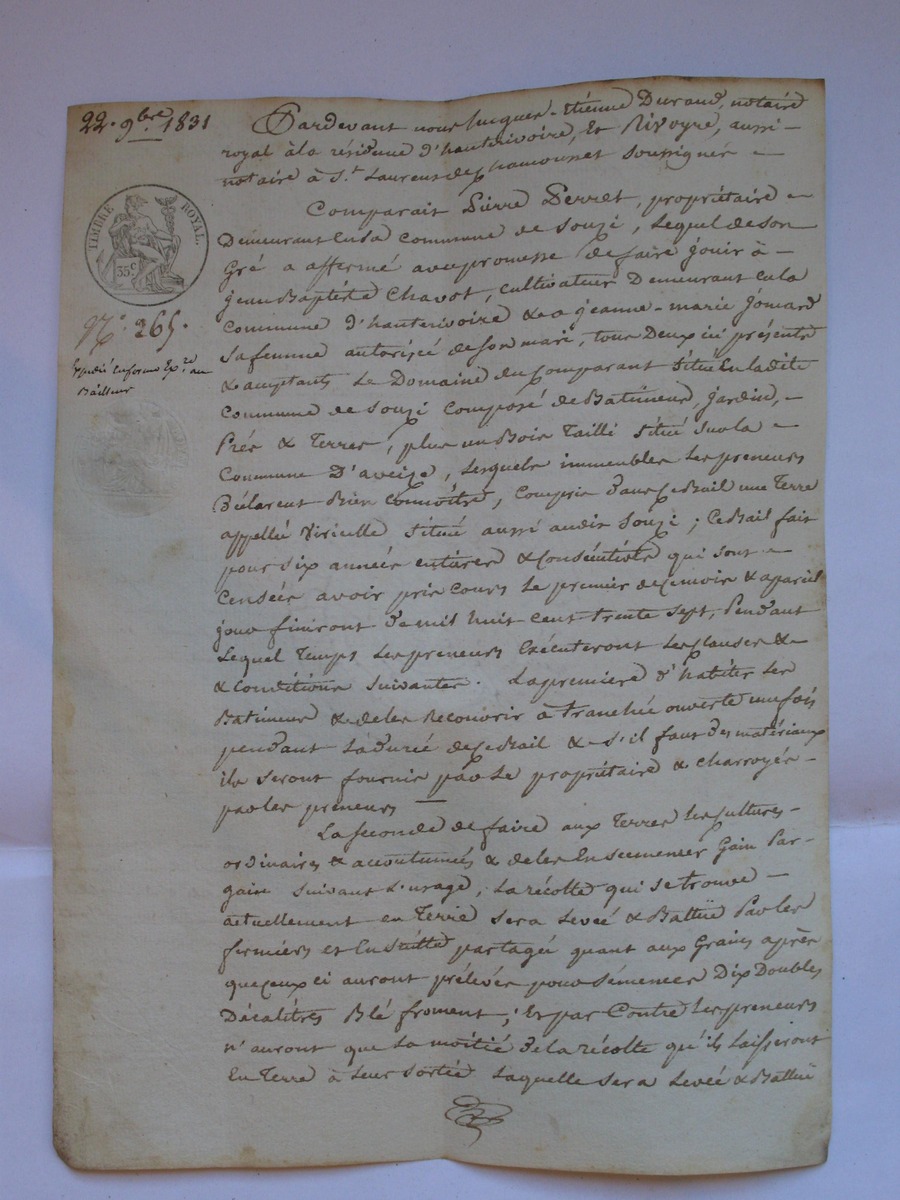 22. 9bre 1831
TIMBRE ROYAL.
35c
N.o 265.
Expédié en forme Ex.re au
Bailleur
Pardevant nous Jacques-Etienne Durand, notaire
royal à la résidence d'hauterivoire, Et Rivoyre, aussi
notaire à St. Laurent de Chamousset Soussignés
Comparait Pierre Perret, propriétaire
Demeurant en la commune de Souzi, Lequel de son
Gré a affermé avec promesse de faire jouir à
jean Baptiste Chavot, cultivateur Demeurant en la
Commune d'hauterivoire & a jeanne-marie jomard
sa femme autorisée de son mari, tous Deux ici présents
& acceptants, Le Domaine du Comparant Situé en ladite
Commune de Souzi Composé de Batiments, jardin,
Prés & Terres, plus un Bois Tailli situé sur la
Commune D'aveize, Lesquels immeubles Les preneurs
Déclarent Bien Connoître, Compris dans ce Bail une Terre
appellée Virielle située aussi audit Souzi; Ce Bail fait
pour six années entières & Consécutives qui sont
Censées avoir pris Cours Le premier de ce mois & a pareil
jour finiront de mil huit cent trente sept, Pendant
Lequel Temps Les preneurs Exécuteront Les clauses &
& Conditions Suivantes. La premiere d'habiter Les
Batiments & de les Recouvrir à tranchée ouverte une fois
pendant La Durée de ce Bail & s'il faut des matériaux
ils seront fournis par Le propriétaire & charroyés
par les preneurs —
La seconde de faire aux Terres Les cultures
ordinaires & accoutumées & de les Ensemencer Gain Par
gain suivant L'usage, La récolte qui se trouve
actuellement en Terre sera Levée & Battüe Par les
fermiers et Ensuitte partagée quant aux Grains après
que ceux ci auront prélevés pour Semences Dix Doubles
Décalitres Blé froment; Et par Contre Les preneurs
n'auront que La moitié de la récolte qu'ils Laisseront
En Terre à Leur sortie Laquelle sera Levée & Battüe